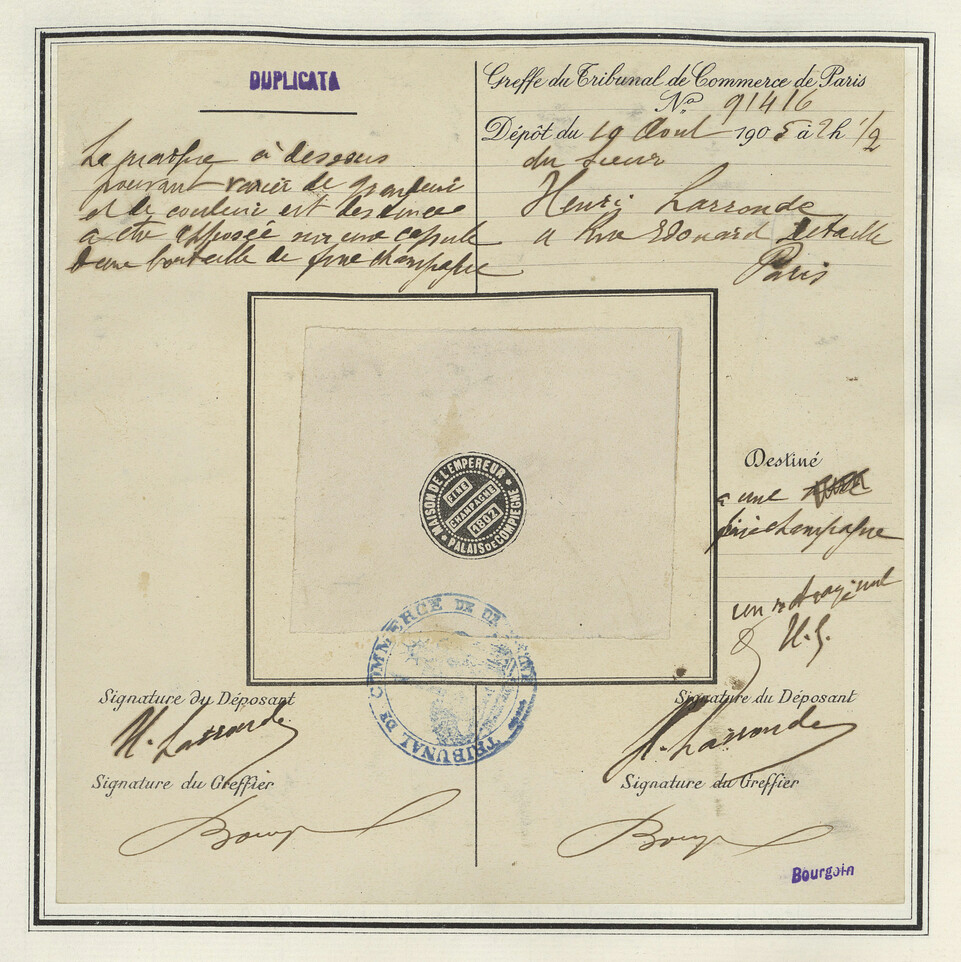 DUPLICATA
La marque ci dessous
pouvant varier de grandeur
et de couleur est destinée
a etre apposée sur une capsule
d'une bouteille de fine champagne
Greffe du Tribunal de Commerce de Paris
No 91416
Dépôt du 19 Aout 1905 à 2h 1/2
du Sieur
Henri Larronde
Rue Edouard Detaille
Paris
MAISON DE L'EMPEREUR
FINE
CHAMPAGNE
1802
PALAIS DE COMPIEGNE
Destiné
a une
fine champagne
un mot rayé nul
H. L.
TRIBUNAL DE COMMERCE DE
Signature du Déposant
H. Larronde
Signature du Greffier
Signature du Déposant
H. Larronde
Signature du Greffier
Bourgoin